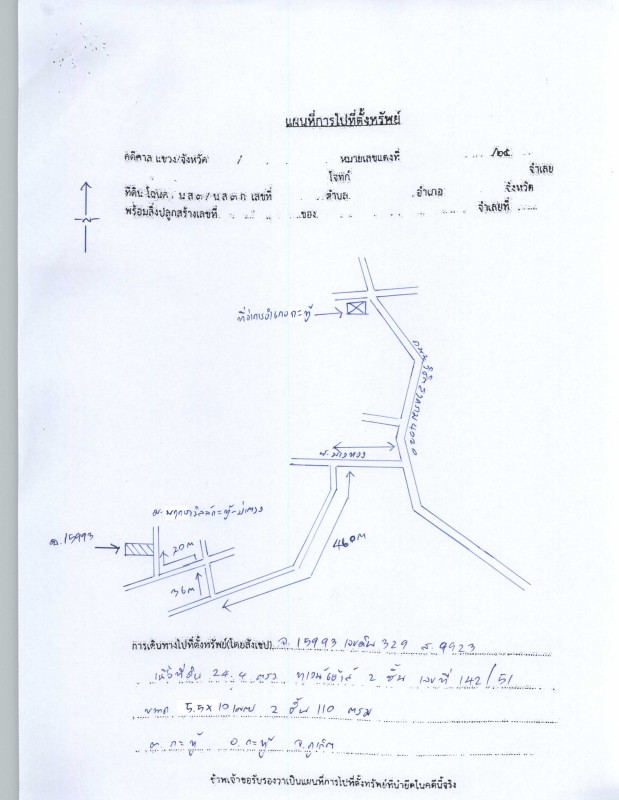 แผนที่การไปที่ตั้งทรัพย์
คดีศาล แขวง/จังหวัด / หมายเลขแดงที่ /๒๕
โจทก์ จำเลย
ที่ดิน โฉนด, น.ส.๓/น.ส.๓ ก เลขที่ ตำบล อำเภอ จังหวัด
พร้อมสิ่งปลูกสร้างเลขที่ ของ จำเลยที่
ที่ว่าการอำเภอกะทู้
ถนน วิชิตสงคราม 4020
ซ. บางทอง
460 M
ม. พฤกษาวิลล์กะทู้-ป่าตอง
20 M
36 M
ฉ. 15993
การเดินทางไปที่ตั้งทรัพย์(โดยสังเขป) ฉ. 15993 เลขดิน 329 ส. 9923
เนื้อที่ดิน 24.4 ตรว ทาวน์เฮ้าส์ 2 ชั้น เลขที่ 142/51
ขนาด 5.5 x 10 เมตร 2 ชั้น 110 ตรม
ต. กะทู้ อ. กะทู้ จ. ภูเก็ต
ข้าพเจ้าขอรับรองว่าเป็นแผนที่การไปที่ตั้งทรัพย์ที่นำยึดในคดีนี้จริง